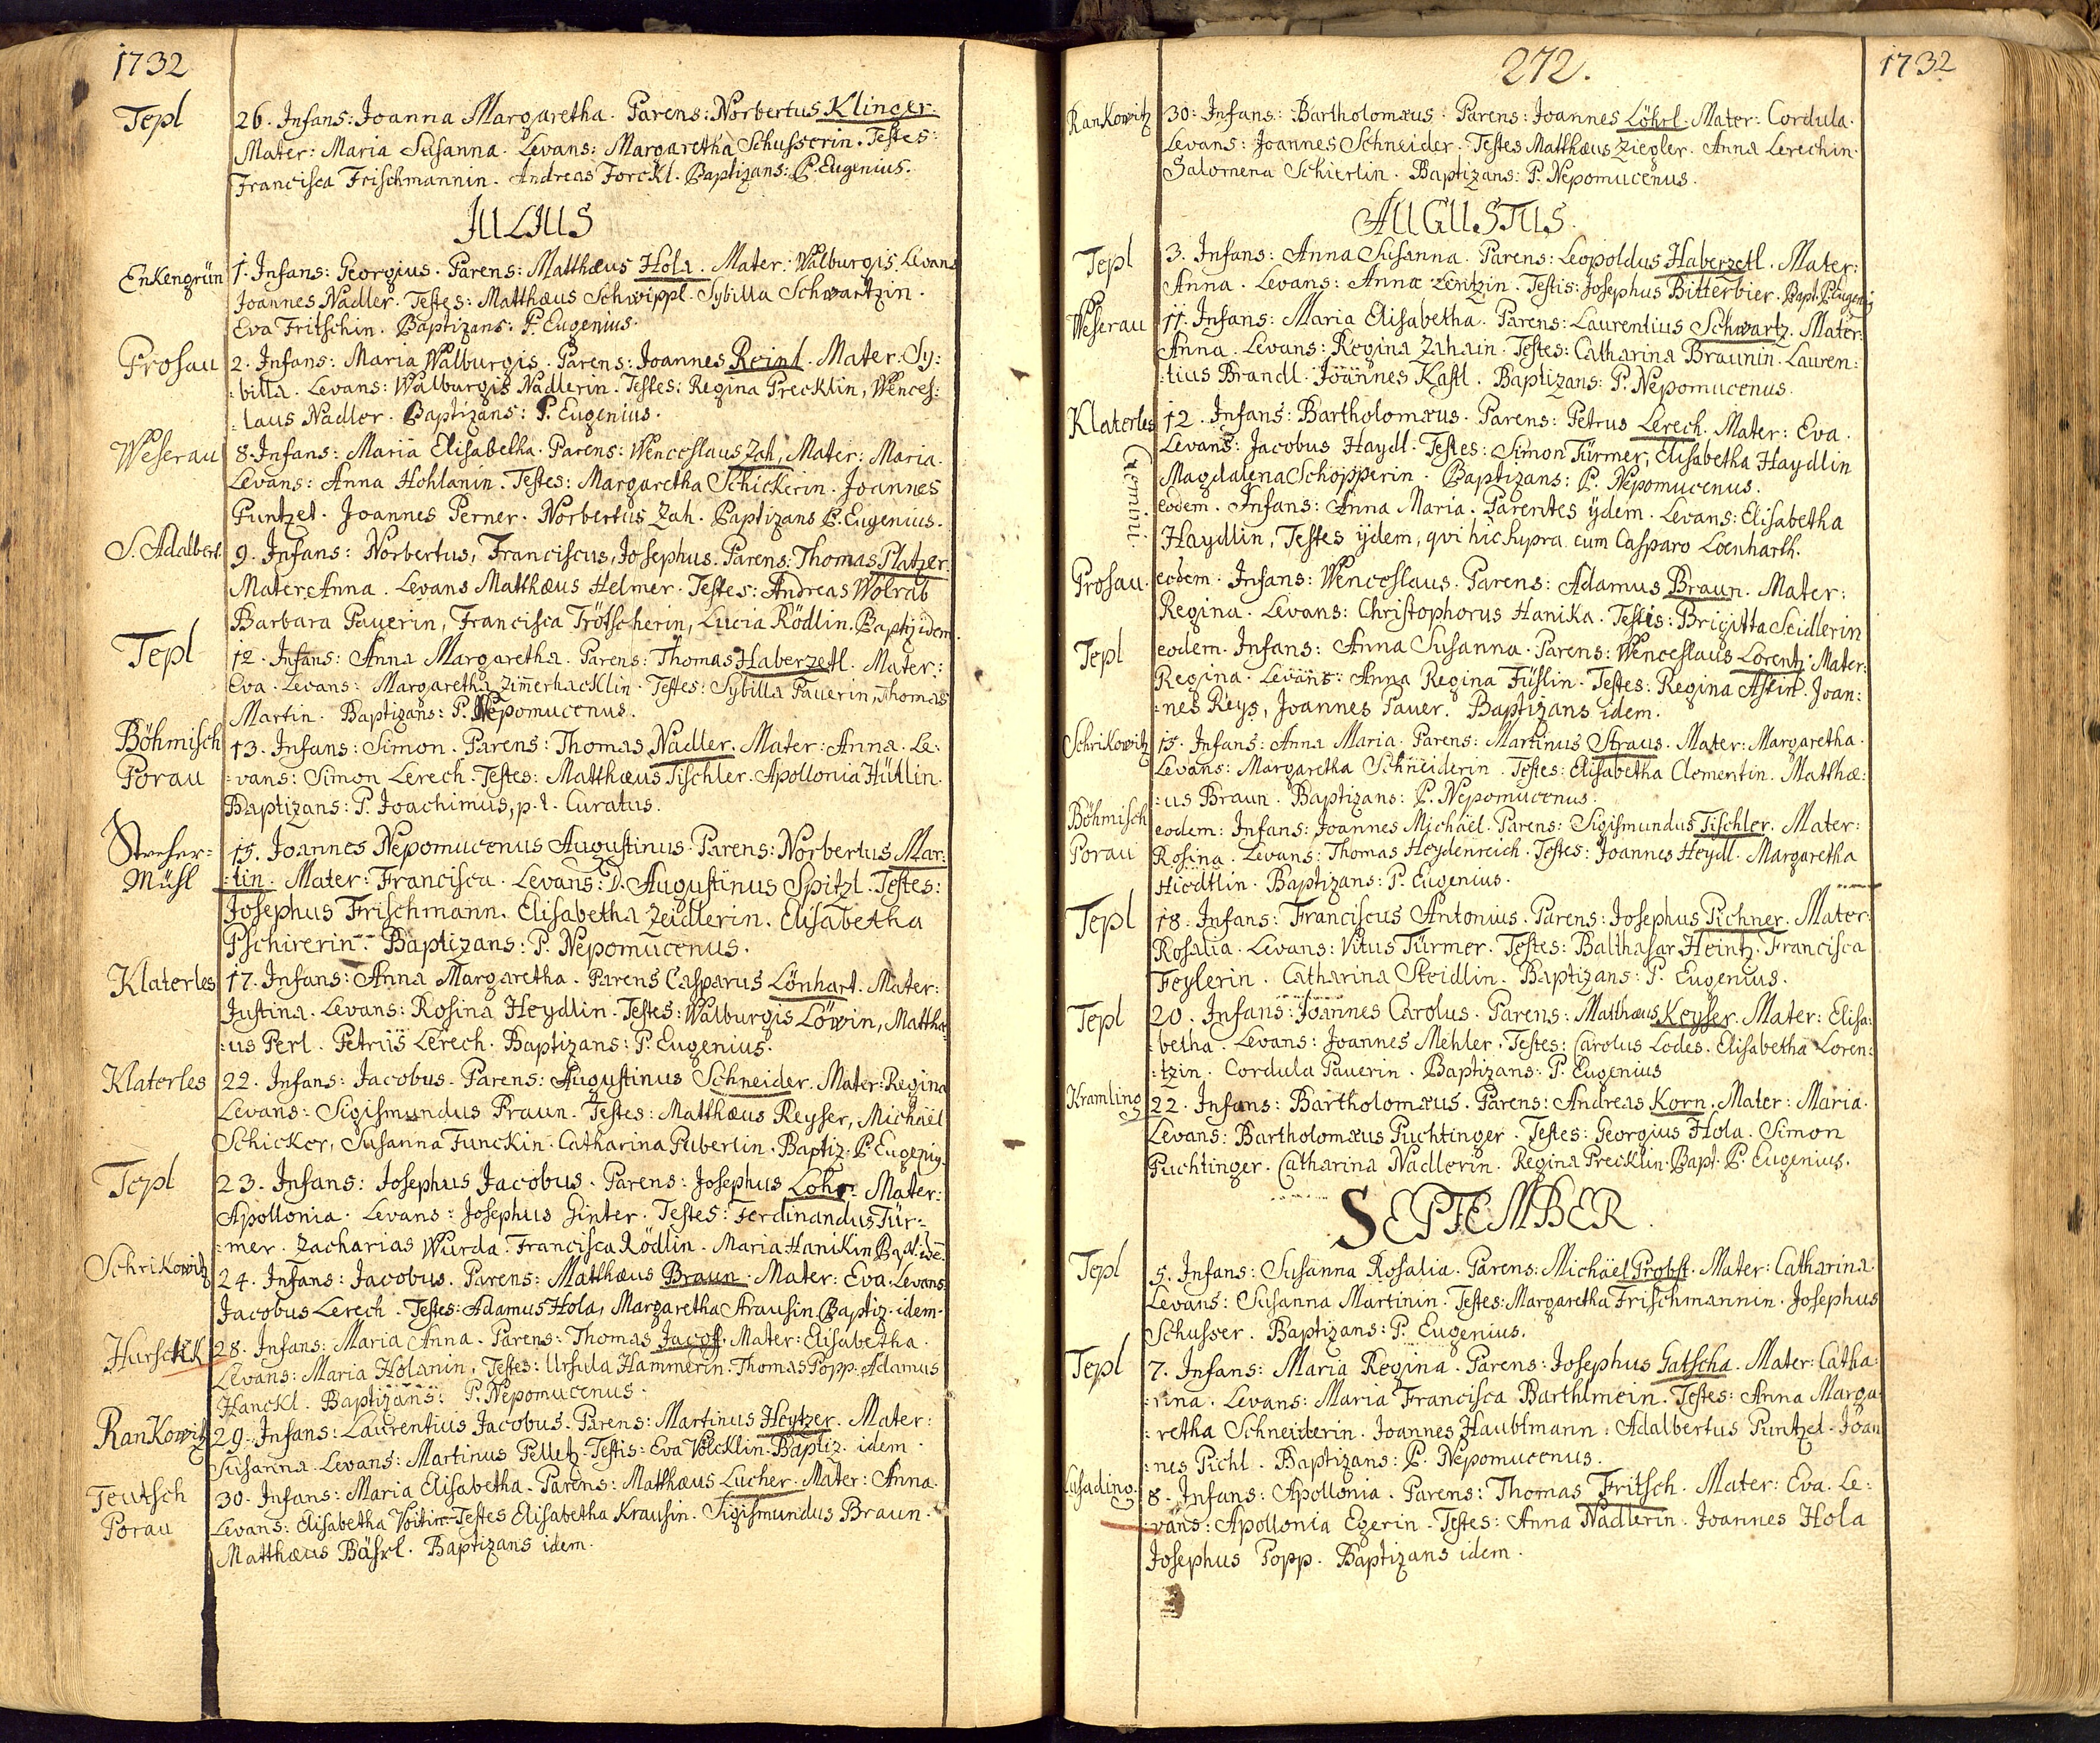 1732
Tepl
26. Infans: Joanna Margaretha. Parens: Norbertus Klinger.
Mater: Maria Susanna. Levans: Margaretha Schusserin. Testes:
Francisca Frischmannin. Andreas Forckl. Baptizans: P. Eugenius.
JULIUS
Enkengrün
1. Infans: Georgius. Parens: Matthæus Hola. Mater: Walburgis. Levans
Joannes Nadler. Testes: Matthæus Schwippl. Sybilla Schwartzin.
Eva Fritschin. Baptizans: P. Eugenius.
Prosau
2. Infans: Maria Walburgis. Parens: Joannes Reind. Mater. Sy:
:billa. Levans: Walburgis Nadlerin. Testes: Regina Precklin, Wences:
:laus Nadler. Baptizans: P. Eugenius.
Weserau
8. Infans: Maria Elisabetha. Parens: Wenceslaus Zah, Mater: Maria.
Levans: Anna Hohlanin. Testes: Margaretha Schickerin. Joannes
Puntzel. Joannes Perner. Norbertus Zah. Baptizans P. Eugenius.
S. Adalbert.
9. Infans: Norbertus, Franciscus, Josephus. Parens: Thomas Platzer.
Mater Anna. Levans Matthæus Helmer. Testes: Andreas Wolrab
Barbara Pauerin, Francisca Trötscherin, Lucia Rödlin. Baptiz idem.
Tepl
12. Infans: Anna Margaretha. Parens: Thomas Haberzetl. Mater:
Eva. Levans: Margaretha Zim̄erhacklin. Testes: Sybilla Pauerin, Thomas
Martin. Baptizans: P. Nepomucenus.
Böhmisch
Porau
13. Infans: Simon. Parens: Thomas Nadler. Mater: Anna. Le:
:vans: Simon Lerech. Testes: Matthæus Tischler. Apollonia Hütlin.
Baptizans: P. Joachimus, p. t. Curatus.
Streser=
Mühl
15. Joannes Nepomucenus Augustinus. Parens: Norbertus Mar:
:tin. Mater: Francisca. Levans: D. Augustinus Spitzl. Testes:
Josephus Frischmann. Elisabetha Zeidlerin. Elisabetha
Pschirerin. Baptizans: P. Nepomucenus.
Klaterles
17. Infans: Anna Margaretha. Parens Casparus Lönhart. Mater:
Justina. Levans: Rosina Heydlin. Testes: Walburgis Löwin, Matthæ:
:us Perl. Petrus Lerech. Baptizans: P. Eugenius.
Klaterles
22. Infans: Jacobus. Parens: Augustinus Schneider. Mater: Regina
Levans: Sigismundus Praun. Testes: Matthæus Reyser, Michäel
Schicker, Susanna Funckin. Catharina Puberlin. Baptiz. P. Eugenig.
Tepl
23. Infans: Josephus Jacobus. Parens: Josephus Lohr. Mater:
Apollonia. Levans: Josephus Ginter. Testes: Ferdinandus Tür=
=mer. Zacharias Wurda. Francisca Rödlin. Maria Hanikin
Schrikowitz
24. Infans: Jacobus. Parens: Matthæus Braun. Mater: Eva. Levans
Jacobus Lerech. Testes: Adamus Hola, Margaretha Strausin. Baptiz. idem.
Hurschk
28. Infans: Maria Anna. Parens: Thomas Jacoff. Mater: Elisabetha.
Levans: Maria Holanin, Testes: Ursula Hammerin. Thomas Popp. Adamus
Hanckl. Baptizans: P. Nepomucenus.
Rankowitz
29. Infans: Laurentius Jacobus. Parens: Martinus Heytzer. Mater:
Susanna. Levans: Martinus Pelletz. Testis: Eva Völcklin. Baptiz. idem.
Teutsch
Porau
30. Infans: Maria Elisabetha. Parens: Matthæus Lucher. Mater: Anna.
Levans: Elisabetha Voitin. Testes Elisabetha Krausin. Sigismundus Braun.
Matthæus Bäsrl. Baptizans idem.
272.
1732
Rankowitz
30: Infans: Bartholomæus. Parens: Joannes Löhrl. Mater: Cordula.
Levans: Joannes Schneider. Testes Matthæus Ziegler. Anna Lerechin.
Salomena Schierlin. Baptizans: P. Nepomucenus.
AUGUSTUS.
Tepl
3. Infans: Anna Susanna. Parens: Leopoldus Haberzetl. Mater:
Anna. Levans: Anna Zeritzin. Testis: Josephus Bitterbier. Bapt. P. Eugenig
Weserau
11. Infans: Maria Elisabetha. Parens: Laurentius Schwartz. Mater:
Anna. Levans: Regina Zahain. Testes: Catharina Braunin. Lauren:
:tius Brandl. Joannes Kastl. Baptizans: P. Nepomucenus.
Klaterles
12. Infans: Bartholomæus. Parens: Petrus Lerech. Mater: Eva.
Levans: Jacobus Haydl. Testes: Simon Türmer, Elisabetha Haydlin
Magdalena Schopperin. Baptizans: P. Nepomucenus.
Gemini.
eodem. Infans: Anna Maria. Parentes ijdem. Levans: Elisabetha
Haydlin, Testes ijdem, qvi hic supra cum Casparo Loenharth.
Prosau.
eodem. Infans: Wenceslaus. Parens: Adamus Braun. Mater:
Regina. Levans: Christophorus Hanika. Testis: Brigitta Seidlerin
Tepl
eodem. Infans: Anna Susanna. Parens: Wenceslaus Lorentz. Mater:
Regina. Levans: Anna Regina Füslin. Testes: Regina Astin. Joan:
:nes Reys, Joannes Pauer. Baptizans idem.
Schrikowitz
15. Infans: Anna Maria. Parens: Martinus Straus. Mater: Margaretha.
Levans: Margaretha Schneiderin. Testes: Elisabetha Clementin. Matthæ:
:us Braun. Baptizans: P. Nepomucenus.
Böhmisch
Porau
eodem: Infans: Joannes Michäel. Parens: Sigismundus Tischler. Mater:
Rosina. Levans: Thomas Heydenreich. Testes: Joannes Heydl. Margaretha
Hiodtlin. Baptizans: P. Eugenius.
Tepl
18. Infans: Franciscus Antonius. Parens: Josephus Pichner. Mater.
Rosalia. Levans: Vitus Türmer. Testes: Balthasar Heintz. Francisca
Feylerin. Catharina Steidlin. Baptizans: P. Eugenius.
Tepl
20. Infans: Joannes Carolus. Parens: Matthæus Keyser. Mater: Elisa:
:betha. Levans: Joannes Mehler. Testes: Carolus Lodes. Elisabetha Loren:
:tzin. Cordula Pauerin. Baptizans: P. Eugenius
Kramling
22. Infans: Bartholomæus. Parens: Andreas Korn. Mater: Maria.
Levans: Bartholomæus Puchtinger. Testes: Georgius Hola. Simon
Puchtinger. Catharina Nadlerin. Regina Precklin. Bapt. P. Eugenius.
SEPTEMBER.
Tepl
5. Infans: Susanna Rosalia. Parens: Michäel Probst. Mater: Catharina.
Levans: Susanna Martinin. Testes: Margaretha Frischmannin. Josephus
Schusser. Baptizans: P. Eugenius.
Tepl
7. Infans: Maria Regina. Parens: Josephus Gatscha. Mater: Catha:
:rina. Levans: Maria Francisca Barthlmein. Testes: Anna Marga:
:retha Schneiderin. Joannes Haubtmann. Adalbertus Puntzel. Joan
:nes Pichl. Baptizans: P. Nepomucenus.
Lusading.
8. Infans: Apollonia. Parens: Thomas Fritsch. Mater: Eva. Le:
:vans: Apollonia Egerin. Testes: Anna Nadlerin. Joannes Hola
Josephus Popp. Baptizans idem.